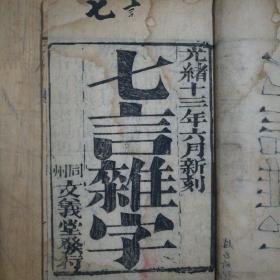 光緒十三年六月新刻
七言雜字
同州
文義堂發行
七言